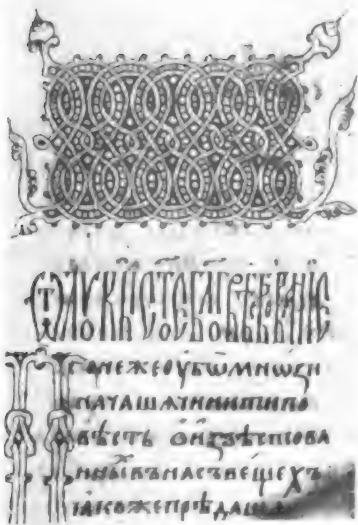 Ѿ лоукы ст҃ое бл҃говѣствованїе
Понежеоубѡмноѕи
начашѧчинитипо
вѣсть ѡизвѣствова
нныⷯвънасъвещехъ
ꙗкожепрѣдаша